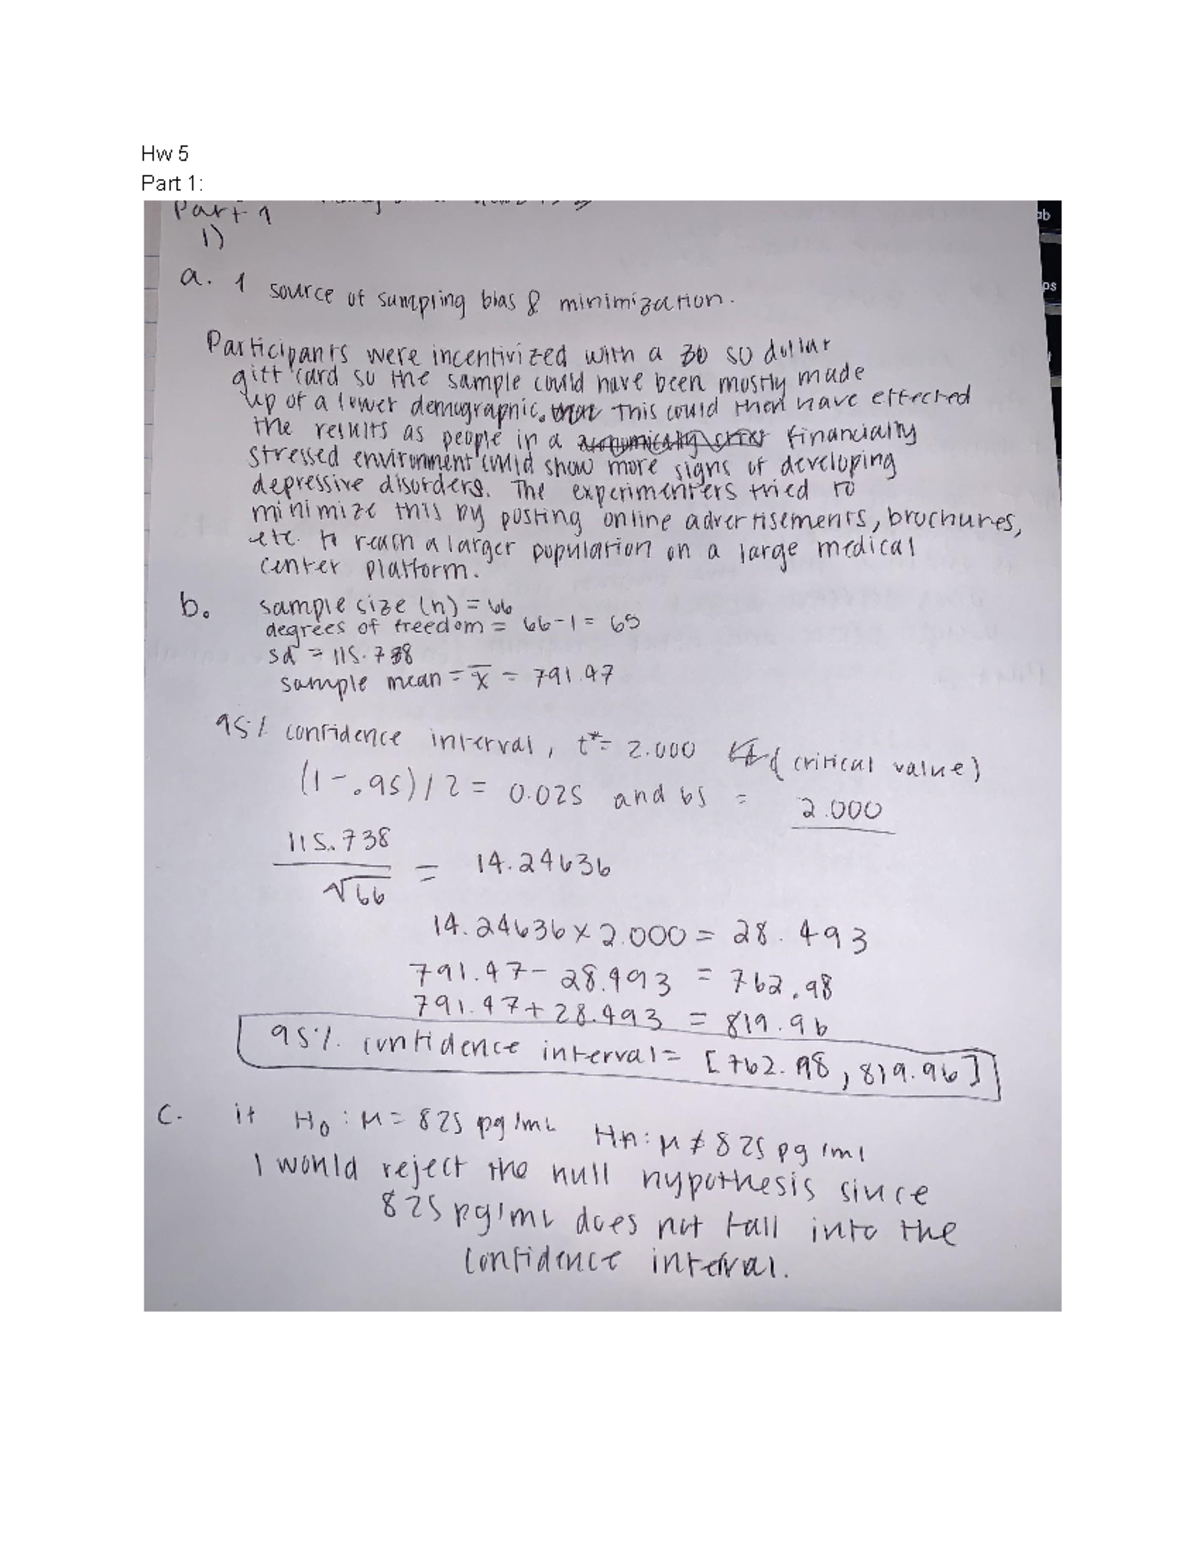 Hw 5
Part 1:
Part 1
ab
1)
ps
a. 1 source of sampling bias & minimization.
Participants were incentivized with a 50 dollar
gift card so the sample could have been mostly made
up of a lower demographic. This could then have effected
the results as people in a financially
stressed environment could show more signs of developing
depressive disorders. The experimenters tried to
minimize this by posting online advertisements, brochures,
etc. to reach a larger population on a large medical
center platform.
b. sample size (n) = 66
degrees of freedom = 66-1 = 65
sd = 115.738
sample mean = x̄ = 791.47
95% confidence interval, t*= 2.000 (critical value)
(1-.95)/2 = 0.025 and 65 = 2.000
115.738
√66
= 14.24636
14.24636 x 2.000 = 28.493
791.47 - 28.493 = 762.98
791.47 + 28.493 = 819.96
95% confidence interval = [762.98, 819.96]
c. if H₀: μ = 825 pg/mL HA: μ ≠ 825 pg/ml
I would reject the null hypothesis since
825 pg/mL does not fall into the
confidence interval.